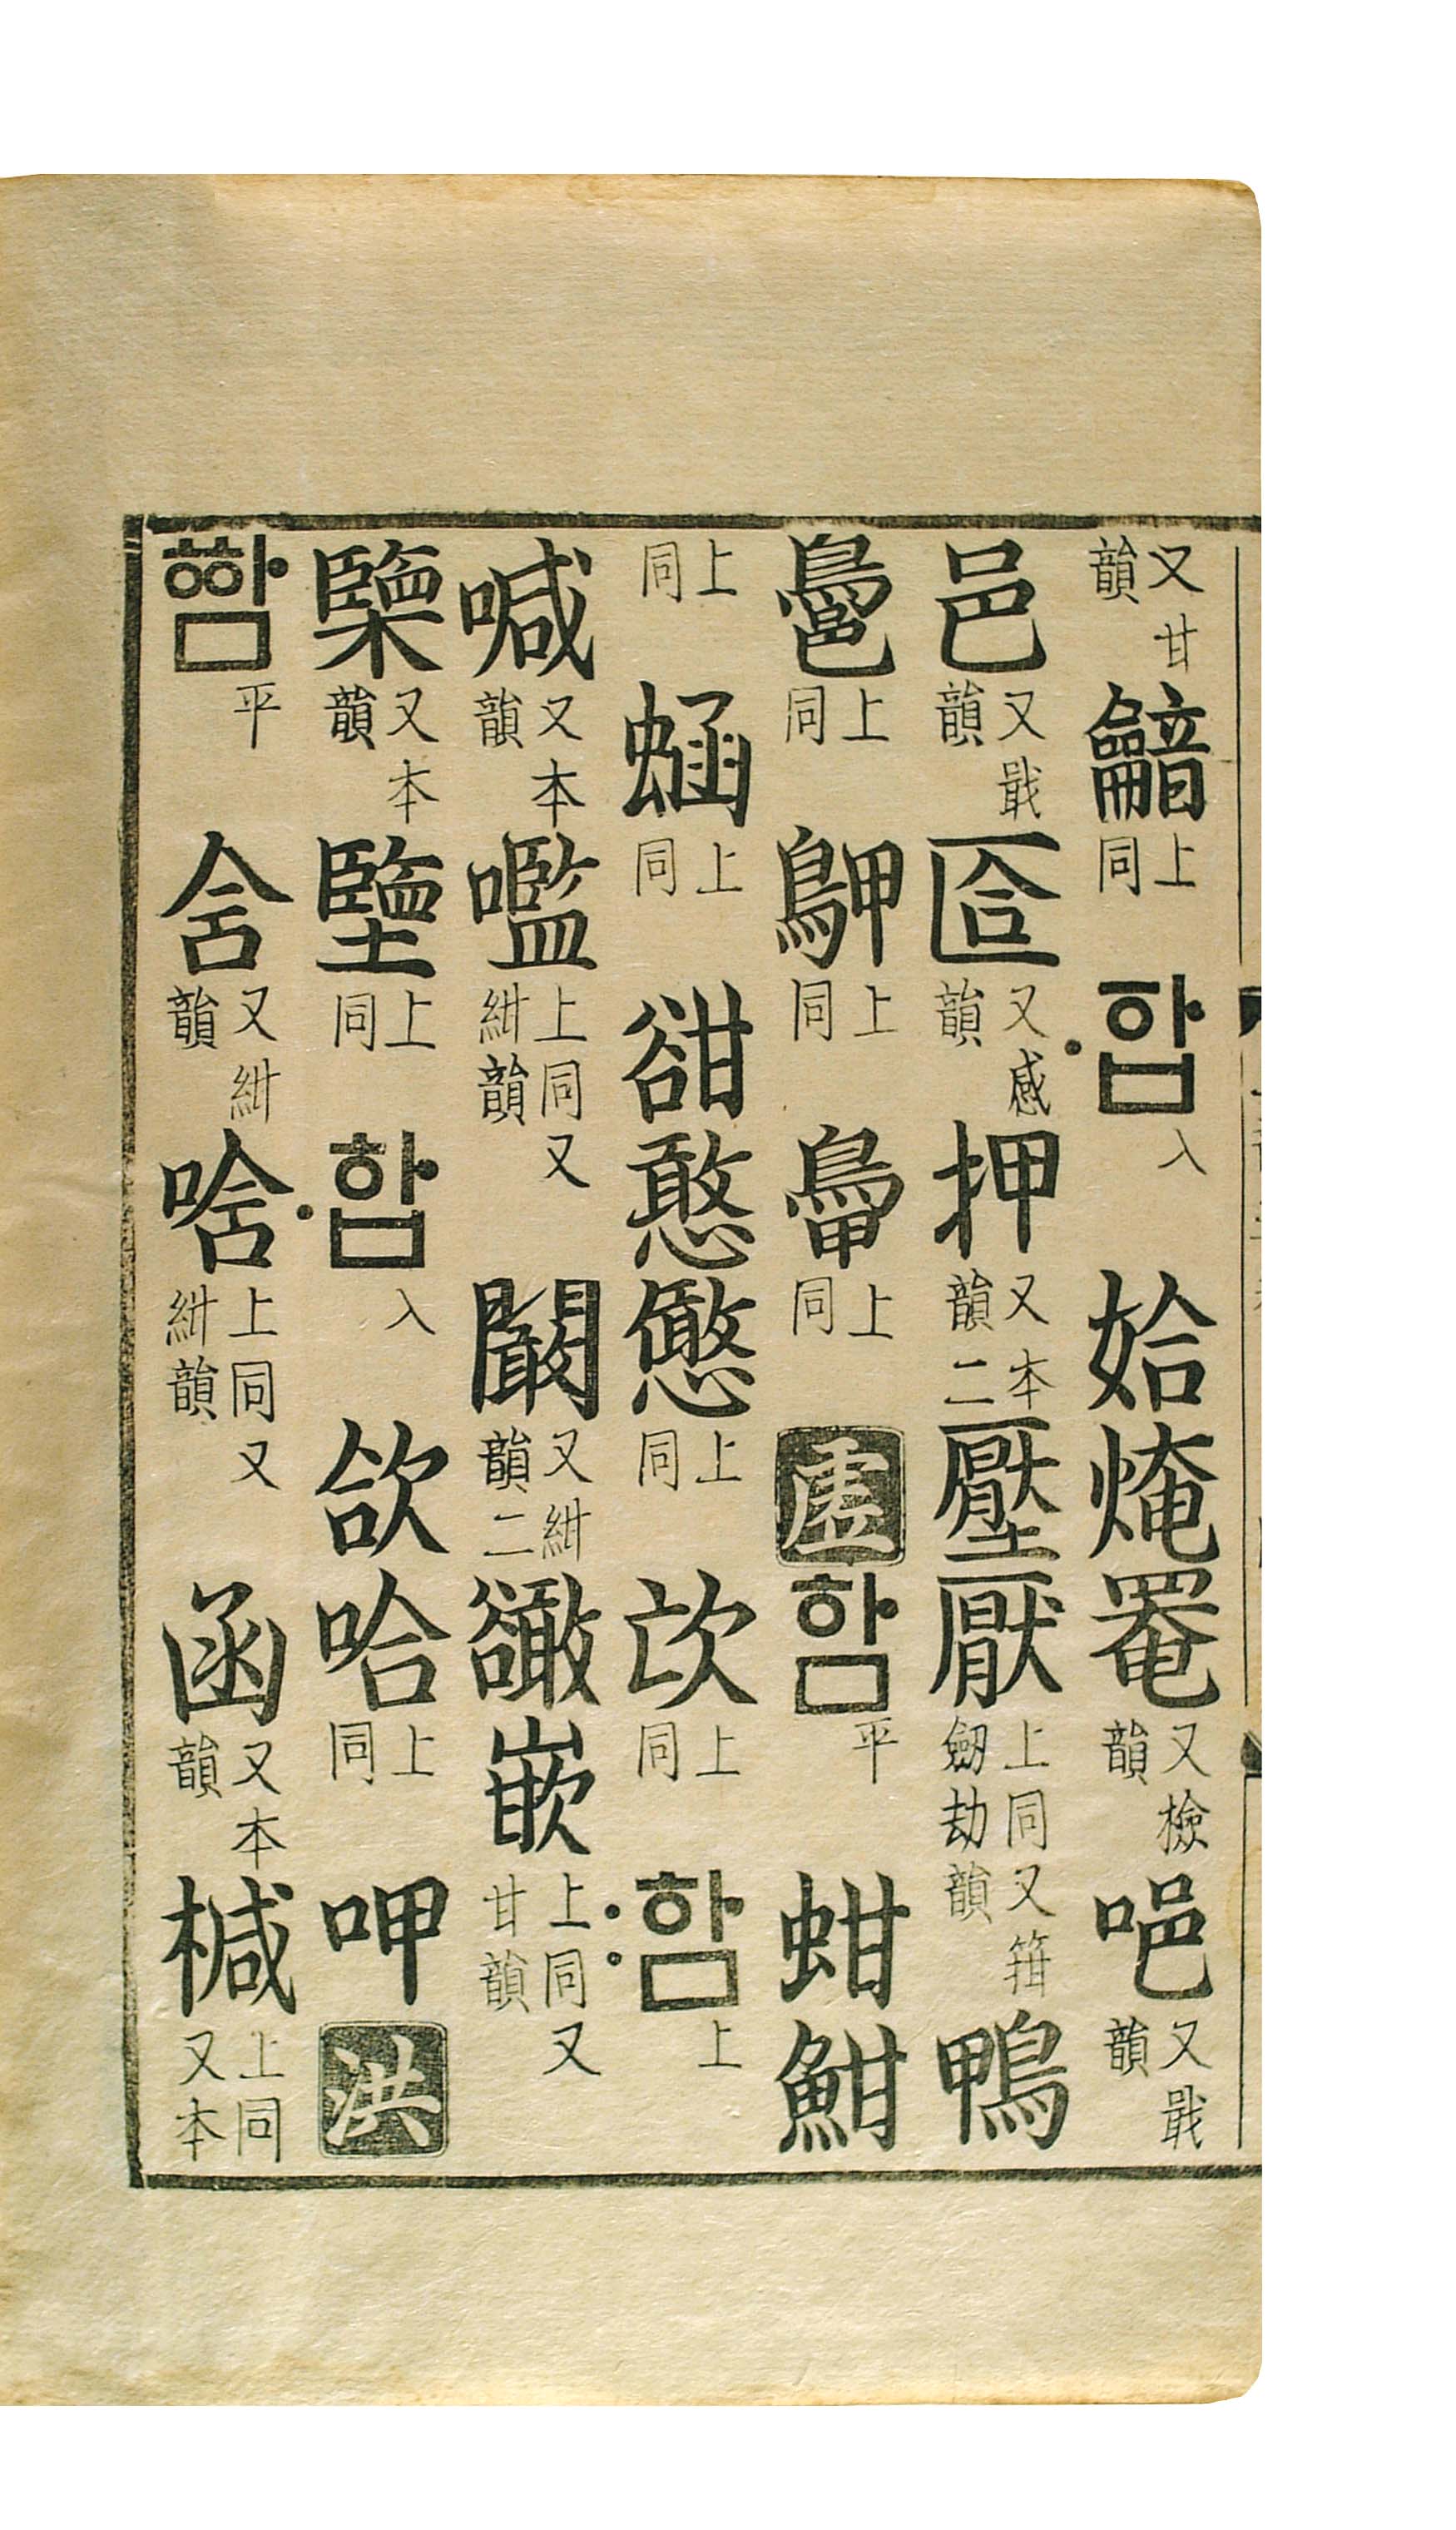 又甘韻 上同 ·ᅙᅡᆸ 入 姶 罨 又檢韻 唈 又戢韻
邑 又戢韻 匼 又感韻 押 又本韻二 壓 厭 上同又箝劒劫韻 鴨
上同 上同 上同 虛 함 平 蚶 魽
上同 上同 憨 上同 上同 :함 上
喊 又本韻 嚂 上同又紺韻 闞 又紺韻二 豃 嵌 上同又甘韻
又本韻 上同 ·합 入 欱 哈 上同 呷 洪
ᅘᅡᆷ 平 含 又紺韻 唅 上同又紺韻 函 又本韻 椷 上同又本